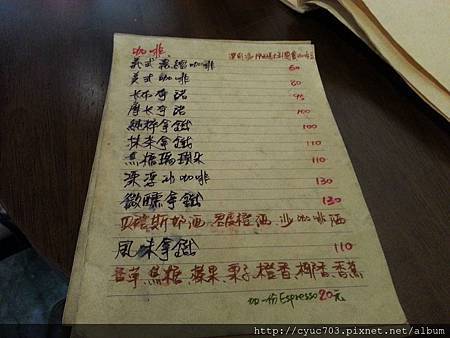 咖啡
義式濃縮咖啡 60
美式咖啡 80
卡布奇諾 95
摩卡奇諾 100
經典拿鐵 100
抹茶拿鐵 110
焦糖瑪琪朵 110
漂浮冰咖啡 130
微醺拿鐵 130
貝禮斯奶酒.君度橙酒.沙 咖啡酒
風味拿鐵 110
香草.焦糖.蘋果.栗子.橙香.椰香.香蕉
加一份Espresso20元
http://cyuc703.pixnet.net/album